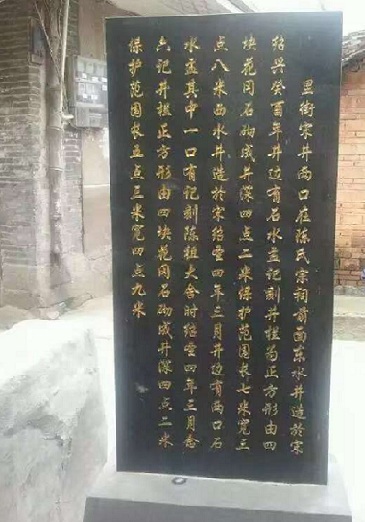 里街宋井两口在陈氏宗祠前面东水井造於宋
绍兴癸酉年井边有石水盂记刻井栏为正方形由四
块花冈石砌成井深四点二米保护范围长七米宽三
点八米西水井造於宋绍圣四年三月井边有两口石
水盂其中一口有记刻陈祖大舍时绍圣四年三月念
六记井栏正方形由四块花冈石砌成井深四点二米
保护范围长五点三米宽四点九米